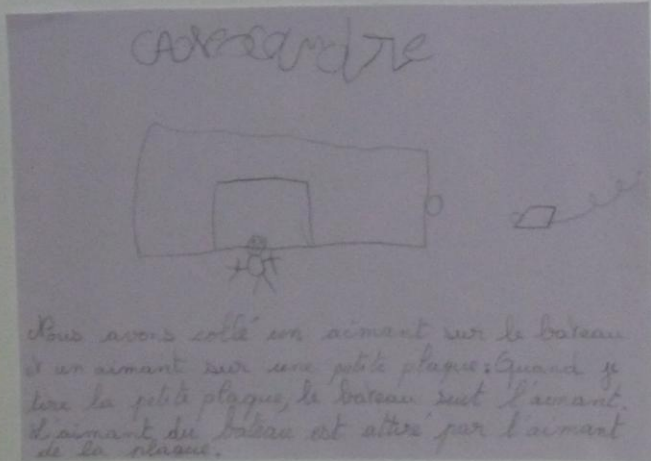 Nous avons collé un aimant sur le bateau
et un aimant sur une petite plaque : Quand je
tire la petite plaque, le bateau suit l'aimant.
L'aimant du bateau est attiré par l'aimant
de la plaque.